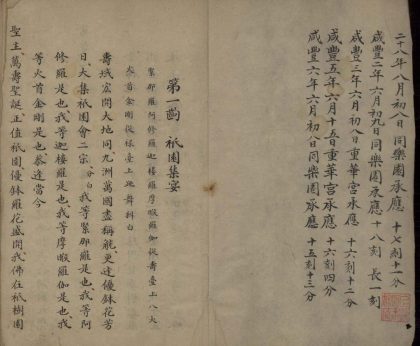 二十八年八月初八日同樂園承應 十七刻十一分
咸豐二年六月初九日同樂園承應 十八刻 長一刻
咸豐三年六月初八日重華宮承應 十六刻十二分
咸豐五年六月十五日重華宮承應 十六刻四分
咸豐六年六月初八日同樂園承應 十五刻十三分
第一齣 祇園集宴
緊那羅阿修羅迦樓羅摩睺羅伽從壽臺上八大
火首金剛從祿臺上跳舞科白
壽域宏開大地同九洲萬國盡稱觥更逢優鉢花芳
日大集祇園會二宗 分白 我等緊那羅是也我等阿
修羅是也我等迦樓羅是也我等摩睺羅伽是也我
等火首金剛是也恭逢當今
聖主萬壽聖誕正值祇園優鉢羅花盛開我佛在祇樹園